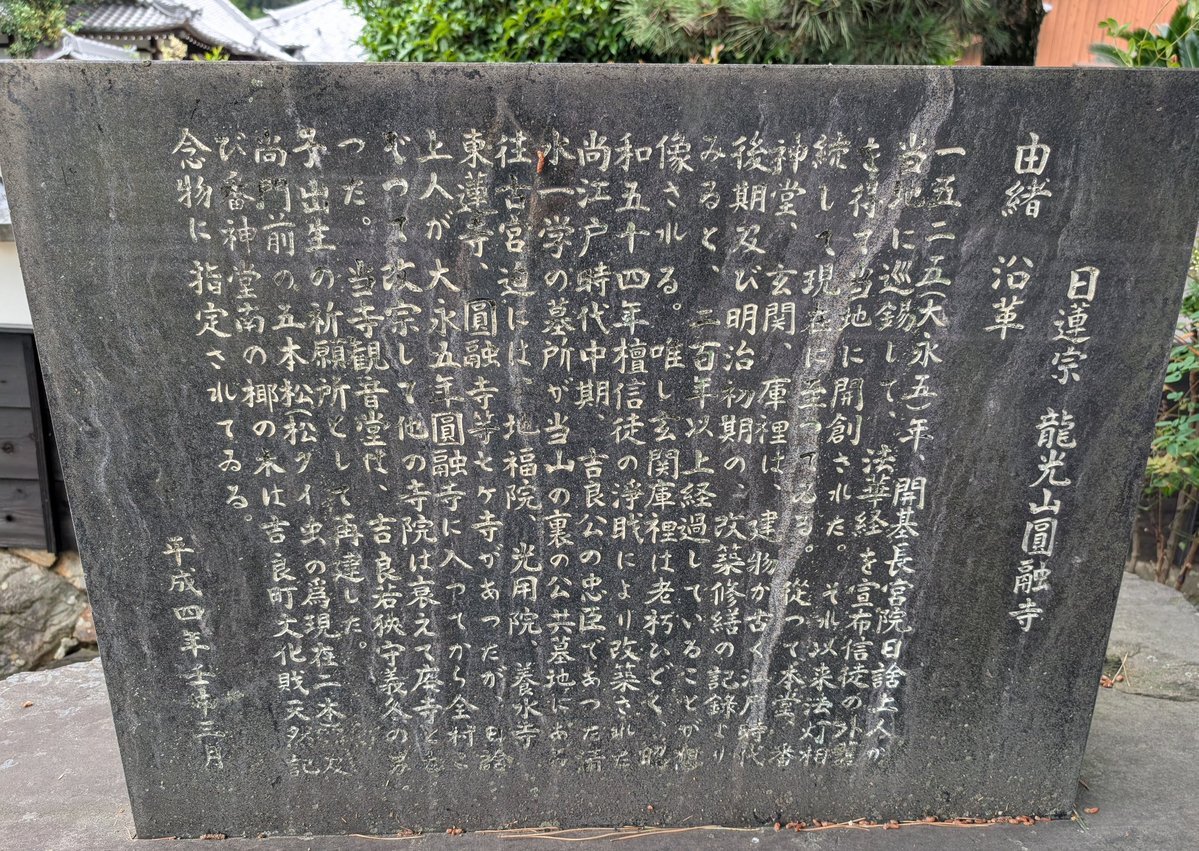 日連宗 龍光山圓融寺
由緒 沿革
一五二五(大永五)年、開基長宮院日詥上人が
当地に巡錫して、法華経を宣布信徒の外護
を得て当地に開創された。それ以来法灯相
続して現在に至つてゐる。從つて本堂、番
神堂、玄関、庫裡は、建物が古く江戸時代
後期及び明治初期の、改築修繕の記録より
みると、二百年以上経過していることが想
像される。唯し玄関庫裡は老朽ひどく、昭
和五十四年檀信徒の浄財により改築された
尚江戸時代中期、吉良公の忠臣であつた清
水一学の墓所が当山の裏の公共墓地にあり
往古宮迫には、地福院、光用院、養水寺
東蓮寺、圓融寺等七ヶ寺があつたが、日詥
上人が大永五年圓融寺に入つてから全村こ
ぞつて改宗して他の寺院は衰えて廃寺とな
つた。当寺観音堂は、吉良若狹守義久の男
子出生の祈願所として再建した。
尚門前の五本松(松クイ虫の爲現在二本)及
び番神堂南の椰の木は吉良町文化財天然記
念物に指定されてゐる。
平成四年壬申三月